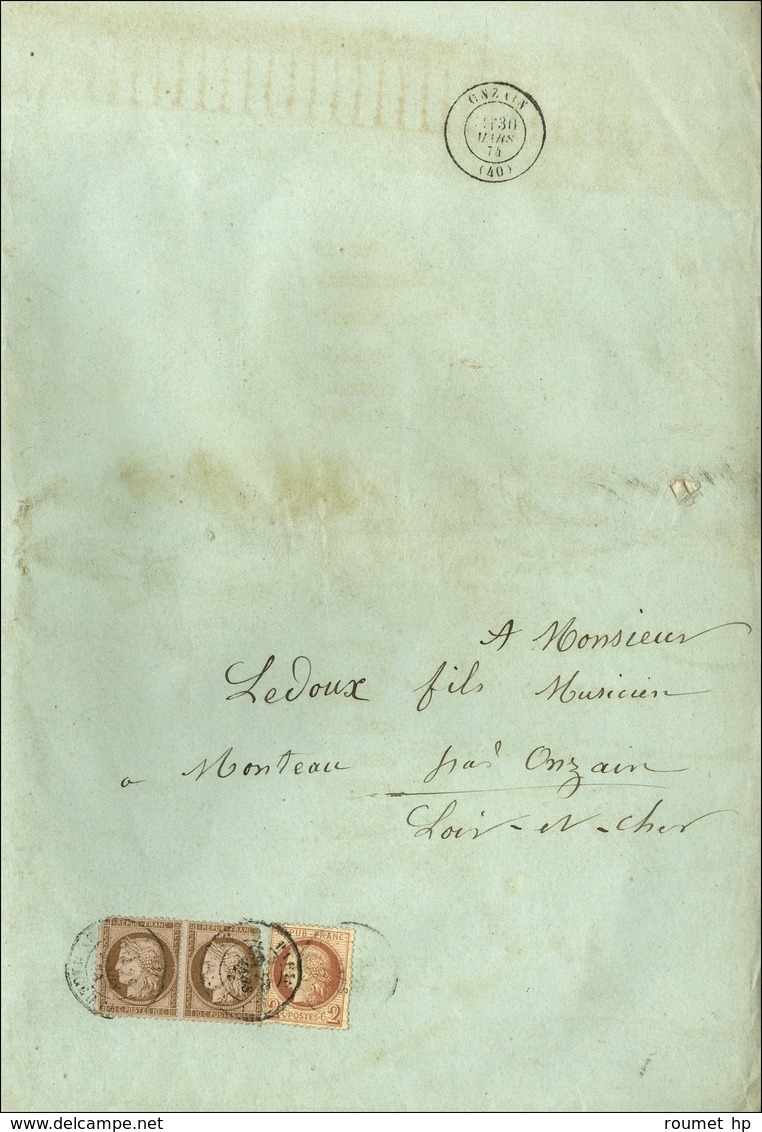 ONZAIN
30
MARS
74
(40)
A Monsieur
Ledoux fils Musicien
a Monteau par Onzain
Loir-et-cher
REPUB FRANC REPUB FRANC UB FRANC
10 C POSTES 10 C 10 C POSTES 2 C POSTES C 2
www.delcampe.net roumet hp